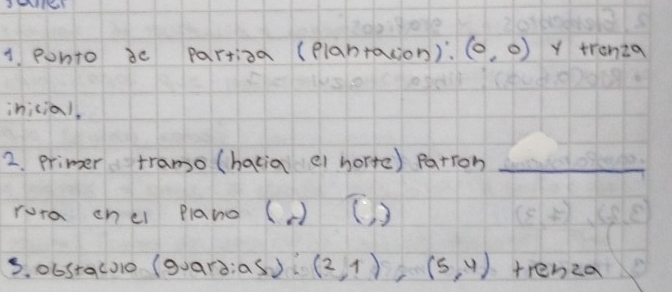 1. Punto de Partida (Plantación): (0, 0) y trenza
inicial.
2. Primer tramo (hacia el norte) Patron ________
ruta en el Plano (,) (,)
3. Obstaculo (guardias): (2, 1), (5, 4) trenza